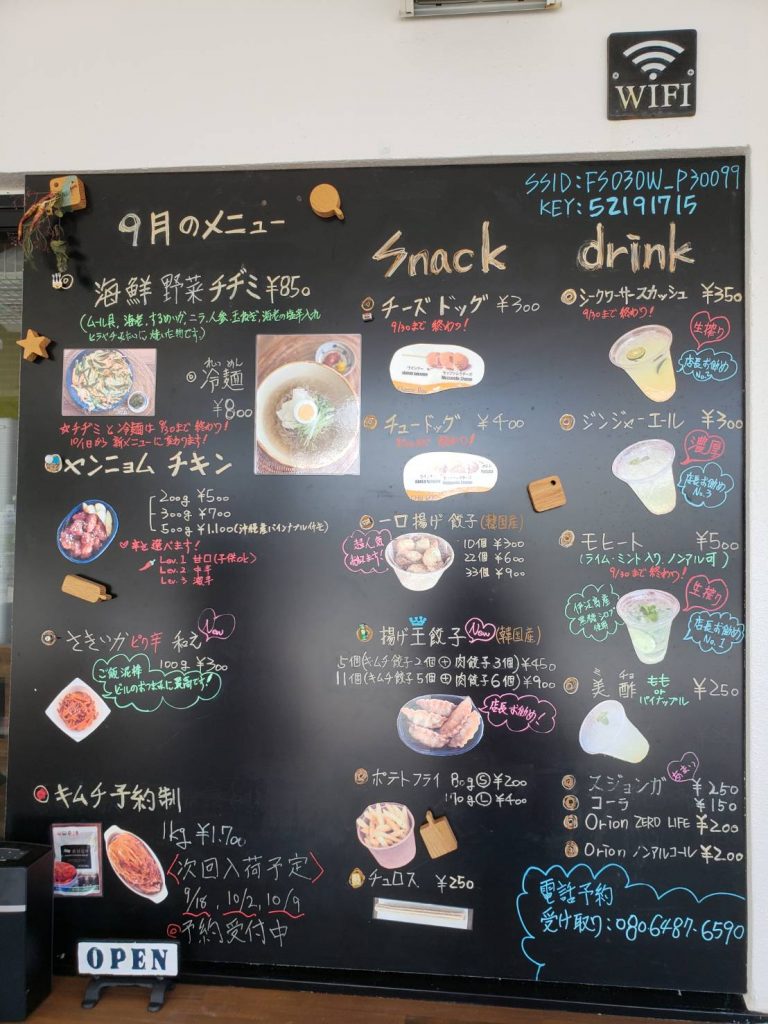 WIFI
SSID:FS030W_P30099
KEY:52191715
9月のメニュー
海鮮 野菜 チヂミ ¥850
(ムール貝、海老、するめいか、ニラ、人参、玉ねぎ、
れいめん
冷麺
¥800
☆チヂミと冷麺は9/30まで終わり!
10/1日から新メニューに変わります!
ヤンニョム チキン
200g ¥500
300g ¥700
500g ¥1,100(沖縄産パインナップル付き)
辛さ選べます!
Lev.1 甘口(子供ok)
Lev.2 中辛
Lev.3 激辛
さきいかピリ辛 和え New
100g ¥300
ご飯泥棒
ビールのおつまみに最高です!
キムチ予約制
1kg ¥1,700
〈次回入荷予定〉
9/18, 10/2, 10/9
◎予約受付中
OPEN
Snack
チーズドッグ ¥300
9/30まで終わり!
チュードッグ ¥400
一口揚げ餃子(韓国産)
超人気
10個 ¥300
22個 ¥600
33個 ¥900
揚げ王餃子 New (韓国産)
5個(キムチ餃子2個+肉餃子3個)¥450
11個(キムチ餃子5個+肉餃子6個)¥900
店長お勧め!
ポテトフライ 80g Ⓢ ¥200
170g Ⓛ ¥400
チュロス ¥250
drink
シークワーサースカッシュ ¥350
9/30まで終わり!
生搾り
店長お勧め
No.2
ジンジャーエール ¥300
濃厚
店長お勧め
No.3
モヒート ¥500
(ライム・ミント入り、ノンアル可)
9/30まで終わり!
生搾り
伊江島産
黒糖シロップ
使用
店長お勧め
No.1
ミ チョ
美酢 もも or パイナップル ¥250
スジョンガ ¥250
コーラ ¥150
Orion ZERO LIFE ¥200
Orion ノンアルコール ¥200
電話予約
受け取り:080-6487-6590